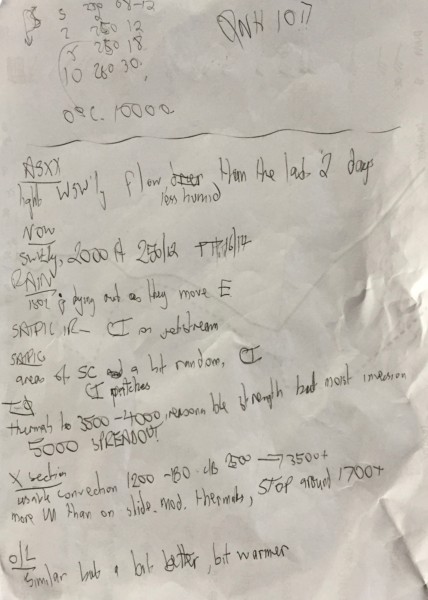 S 250 08-12
2 250 12
5 250 18
10 260 30
QNH 1017
0°C. 10000
ASXX
light WSW'ly flow, than the last 2 days
less humid
NOW
2000 ft 250/12 16/14
RAIN
dying out as they move E
SATPIC IR - CI on jetstream
SATPIC
areas of SC a bit random, CI
CI patches
thermals to 3500-4000, reasonable strength but moist inversion
5000 SPREADOUT
X section
usable convection 1200 - 180 2500 → 3500+
more W than on slide. mod. thermals, STOP around 1700+
O/L
Similar but a bit better, bit warmer